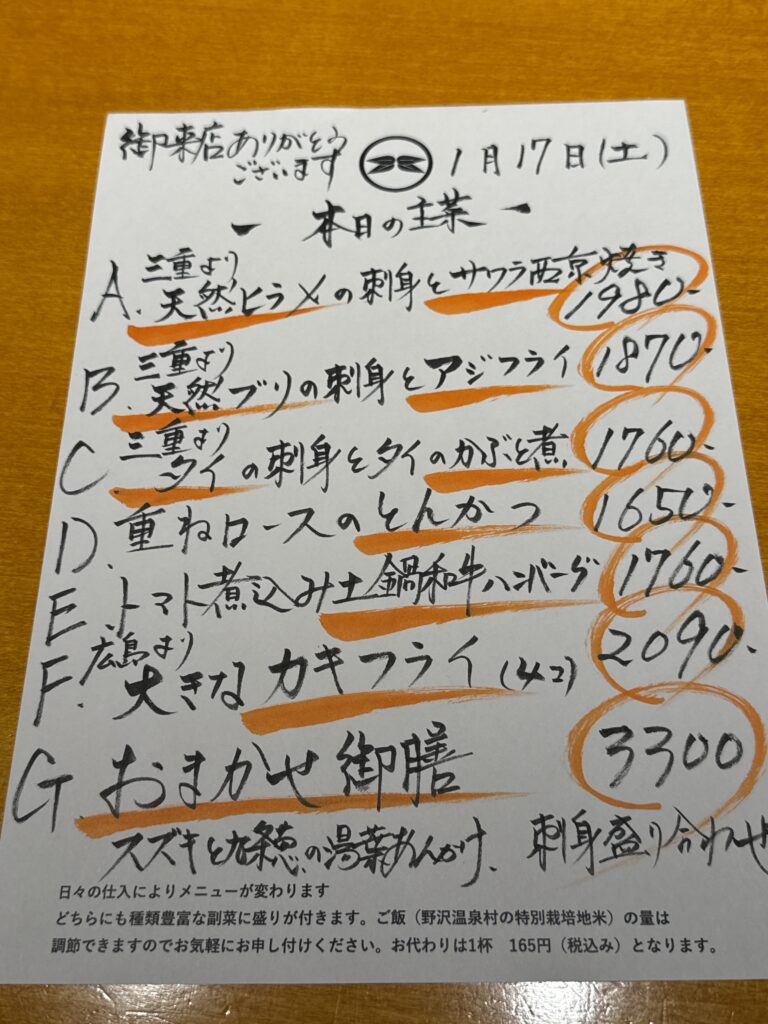 御来店ありがとう
ございます
1月17日(土)
ー 本日の主菜 ー
三重より
A. 天然ヒラメの刺身とサワラ西京焼き
1980-
三重より
B. 天然ブリの刺身とアジフライ 1870-
三重より
C. タイの刺身とタイのかぶと煮 1760-
D. 重ねロースのとんかつ 1650-
E. トマト煮込み土鍋和牛ハンバーグ 1760-
広島より
F. 大きなカキフライ(4コ) 2090-
G おまかせ御膳 3300
スズキと九条葱の湯葉あんかけ、刺身盛り合わせ
日々の仕入によりメニューが変わります
どちらにも種類豊富な副菜に盛りが付きます。ご飯(野沢温泉村の特別栽培地米)の量は
調節できますのでお気軽にお申し付けください。お代わりは1杯 165円(税込み)となります。